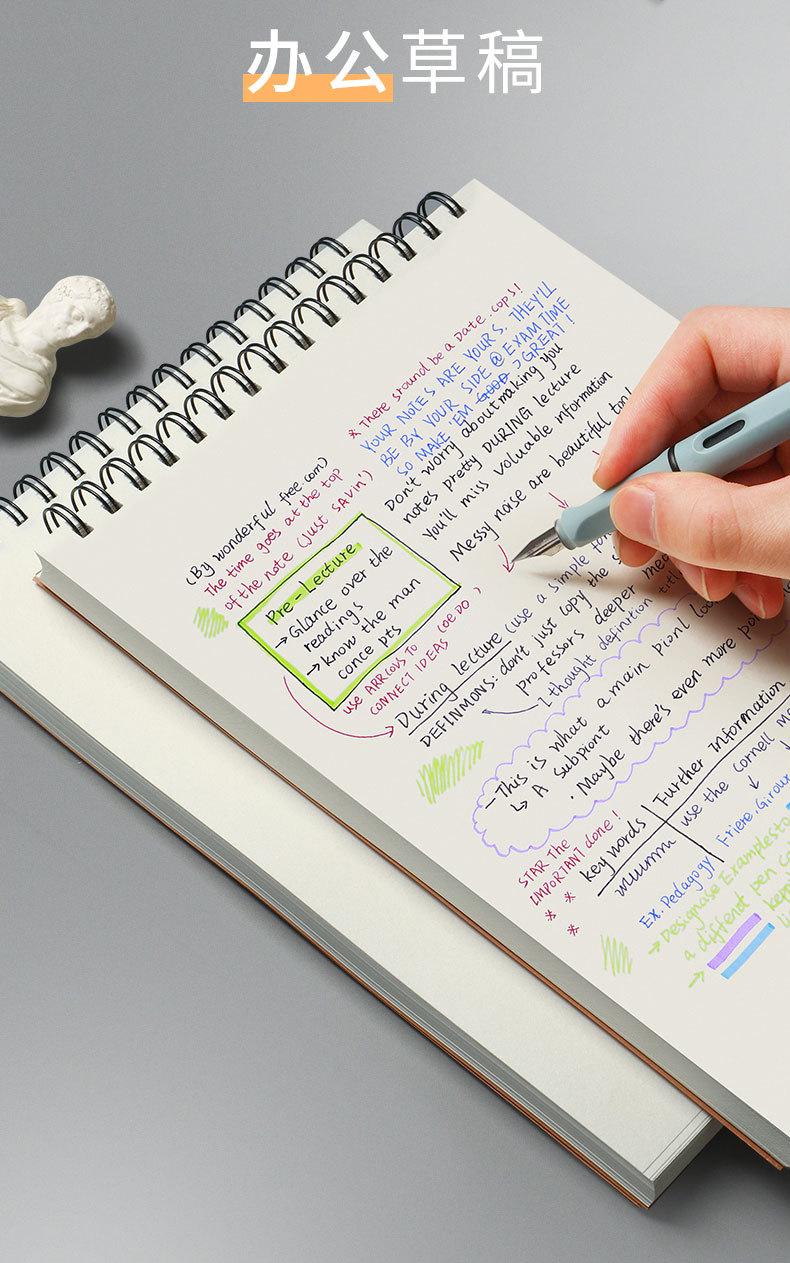 办公草稿
* There sround be a Date .cops!
YOUR NOTES ARE YOURS. THEY'LL
BE BY YOUR SIDE @ EXAM TIME
SO MAKE 'EM GOOD → GREAT!
Don't worry about making you
notes pretty DURING lecture
You'll miss voluable information
Messy noise are beautiful too!
(By wonderful free.com)
The time goes at the top
of the note (just savin')
Pre-Lecture
→ Glance over the
readings
→ know the man
conce pts
use ARRCOVS TO (OEDO)
CONNECT IDEAS
During lecture (use a simple
DEFINMONS: don't just copy the
Professors deeper
1 thought definition
- This is what a main pionl
↳ A subpiont
. Maybe there's even more
STAR The
IMPORTANT done!
* *
* *
key words Further Information
use the cornell
Ex. Pedagogy Friere, Giroux
→ Designase Examplesto
a differdt pen